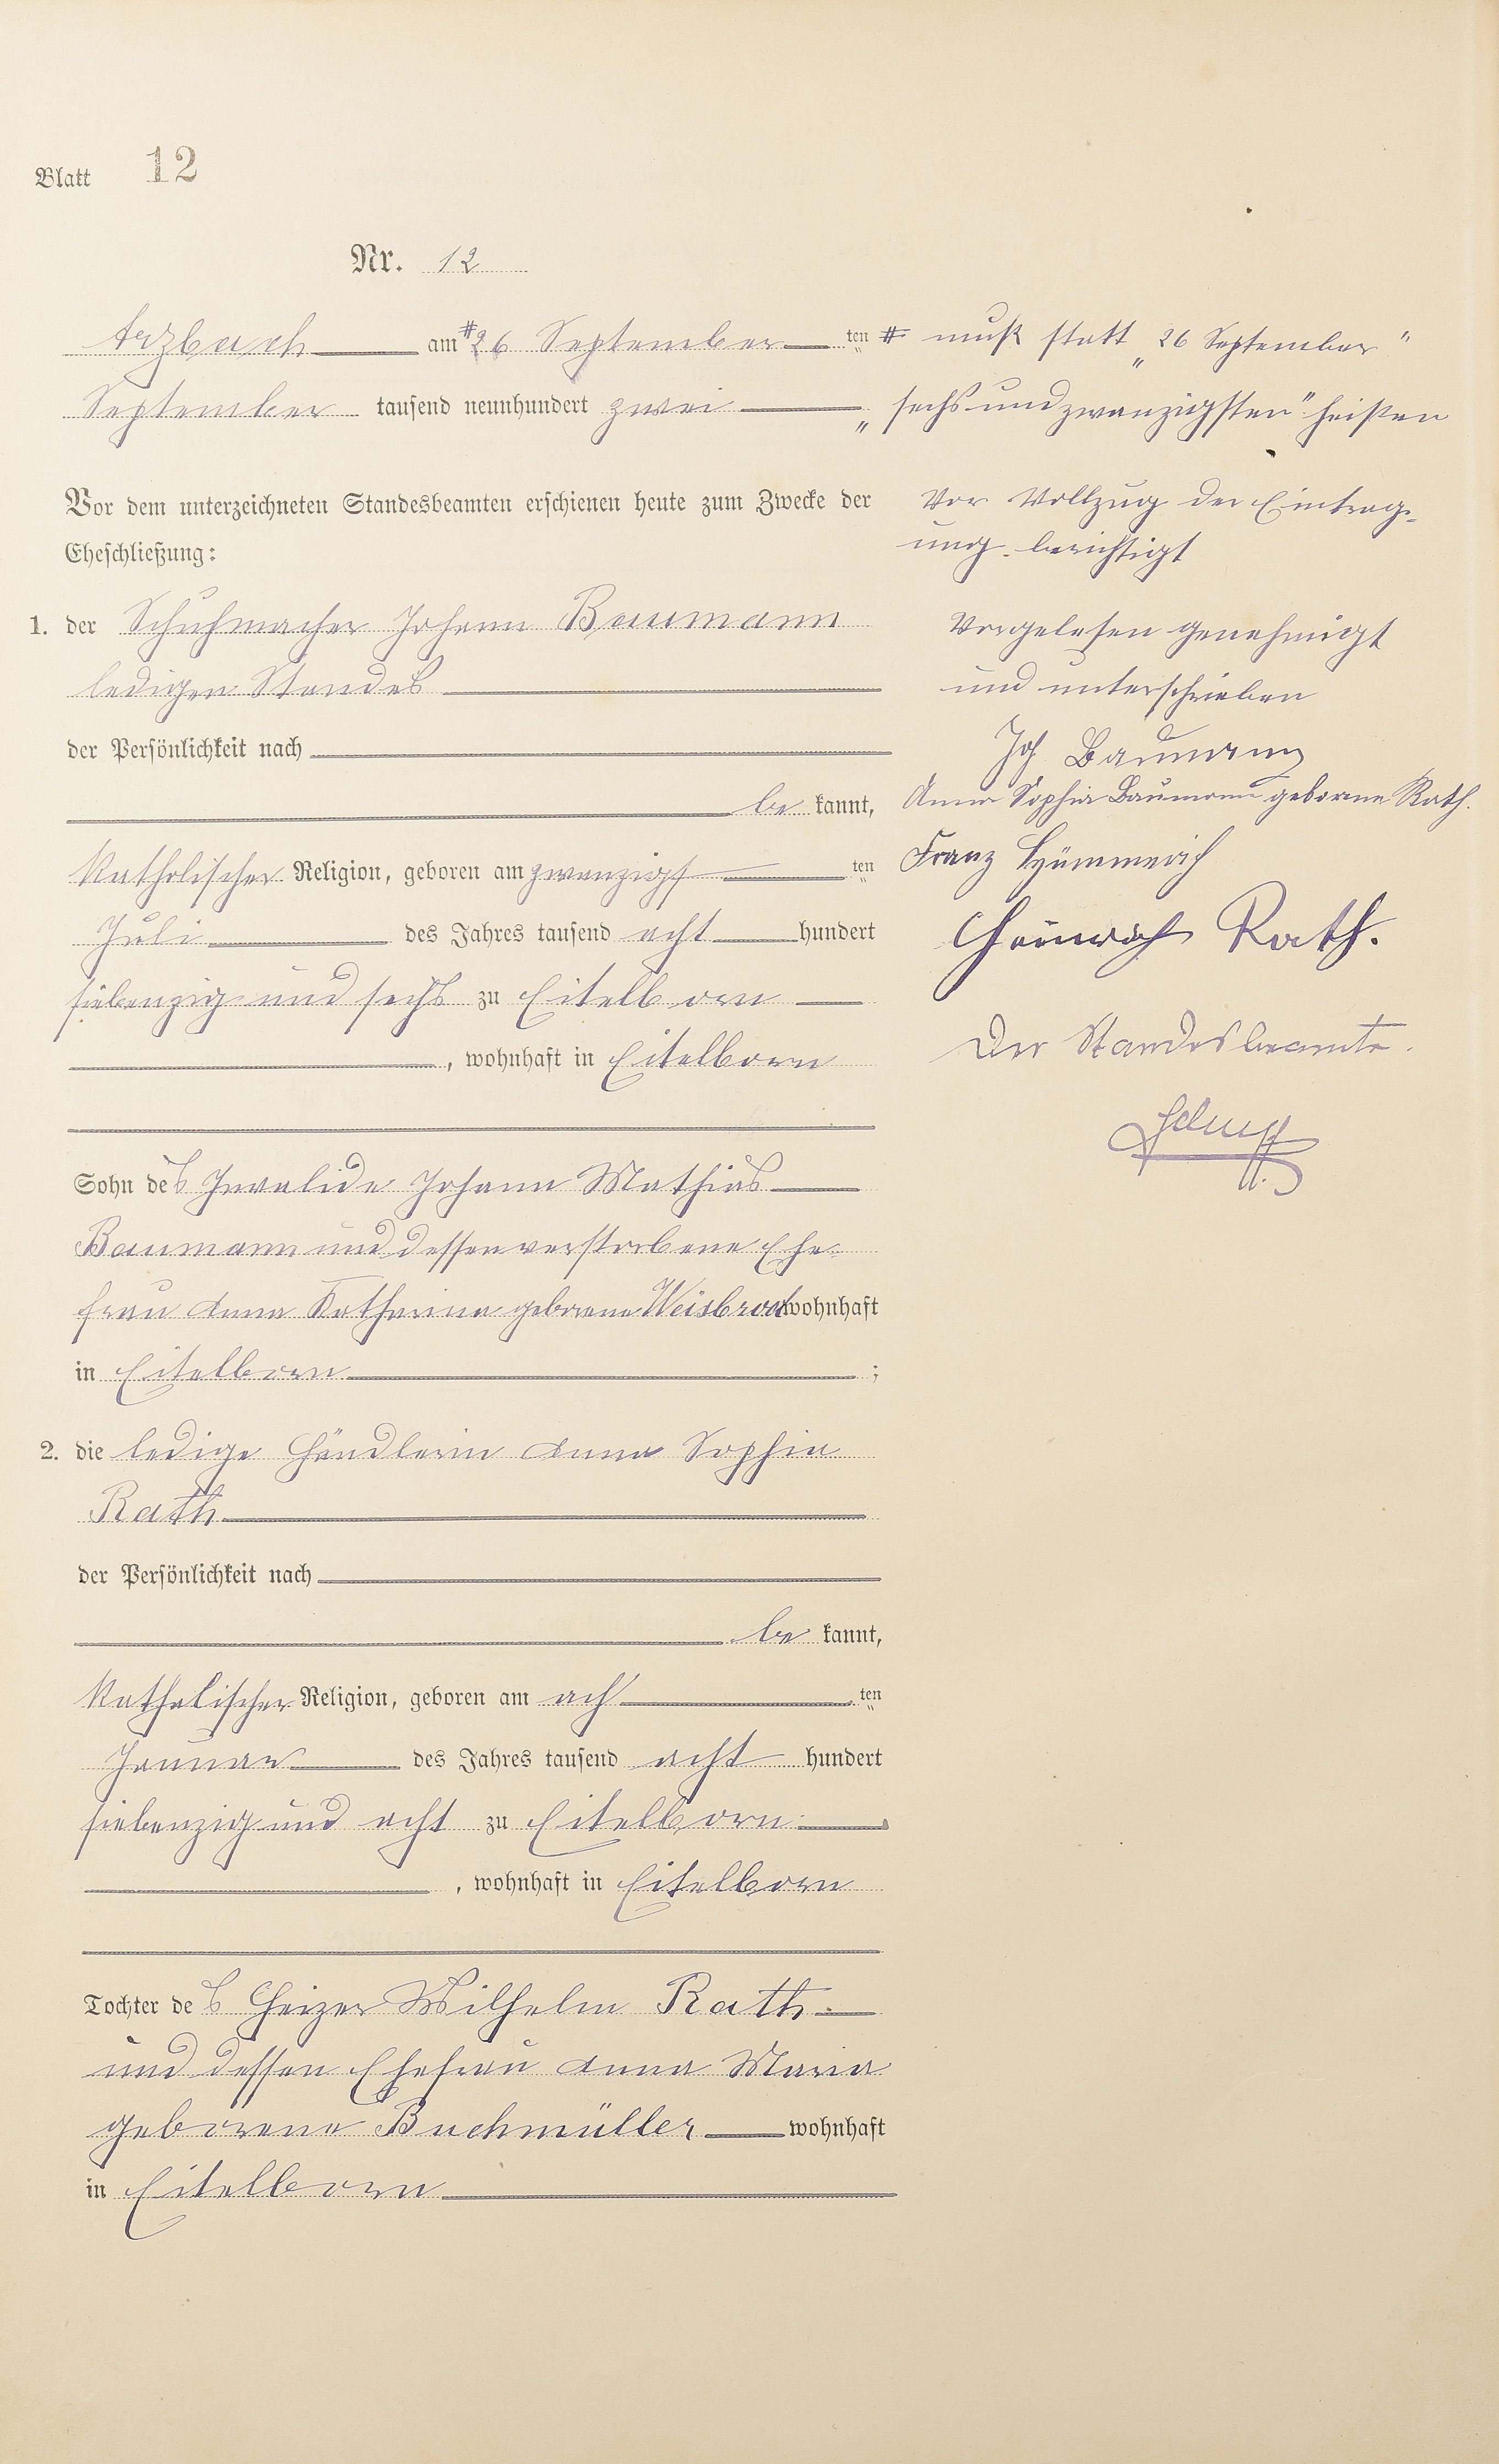 Blatt 12
Nr. 12
Arzbach am # 26 September ten
September tausend neunhundert zwei
Vor dem unterzeichneten Standesbeamten erschienen heute zum Zwecke der
Eheschließung:
1. der Schuhmacher Johann Baumann
ledigen Standes
der Persönlichkeit nach
be kannt,
Katholischer Religion, geboren am zwanzigst ten
Juli des Jahres tausend acht hundert
siebenzig und sechs zu Eitelborn
, wohnhaft in Eitelborn
Sohn des Invalide Johann Mathias
Baumann und dessen verstorbene Ehe-
frau Anna Katharina geborene Weisbrod wohnhaft
in Eitelborn ;
2. die ledige Händlerin Anna Sophia
Rath
der Persönlichkeit nach
be kannt,
Katholischer Religion, geboren am ach ten
Januar des Jahres tausend acht hundert
siebenzig und acht zu Eitelborn
, wohnhaft in Eitelborn
Tochter des Heizer Wilhelm Rath
und dessen Ehefrau Anna Maria
geborene Buchmüller wohnhaft
in Eitelborn
# muß statt „26 September"
„sechs und zwanzigsten" heißen
Vor Vollzug der Eintrag-
ung berichtigt
Vorgelesen genehmigt
und unterschrieben
Joh Baumann
Anna Sophia Baumann geborene Rath.
Franz Hümmerich
Heinrich Rath.
Der Standesbeamte.